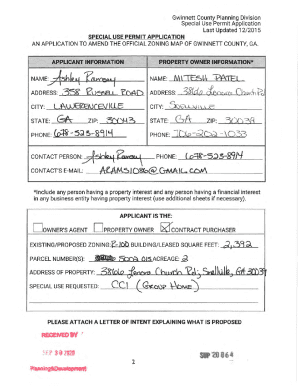 Gwinnett County Planning Division
Special Use Permit Application
Last Updated 12/2015
SPECIAL USE PERMIT APPLICATION
AN APPLICATION TO AMEND THE OFFICIAL ZONING MAP OF GWINNETT COUNTY, GA.
APPLICANT INFORMATION PROPERTY OWNER INFORMATION*
NAME: Ashley Ramsey NAME: MITESH PATEL
ADDRESS: 358 RUSSELL ROAD ADDRESS: 3866 Lenora Church Rd
CITY: LAWERENCEVILLE CITY: Snellville
STATE: GA ZIP: 30043 STATE: GA ZIP: 30039
PHONE: 678-523-8914 PHONE: 706-202-1033
CONTACT PERSON: Ashley Ramsey PHONE: 678-523-8914
CONTACT'S E-MAIL: @GMAIL.COM
*Include any person having a property interest and any person having a financial interest
in any business entity having property interest (use additional sheets if necessary).
APPLICANT IS THE:
OWNER'S AGENT PROPERTY OWNER CONTRACT PURCHASER
EXISTING/PROPOSED ZONING: R-100 BUILDING/LEASED SQUARE FEET: 2,392
PARCEL NUMBER(S): ACREAGE: 2
ADDRESS OF PROPERTY: 3866 Lenora Church Rd, Snellville, GA 30039
SPECIAL USE REQUESTED: CCI (Group Home)
PLEASE ATTACH A LETTER OF INTENT EXPLAINING WHAT IS PROPOSED
RECEIVED BY
SEP 2020
Planning&Development